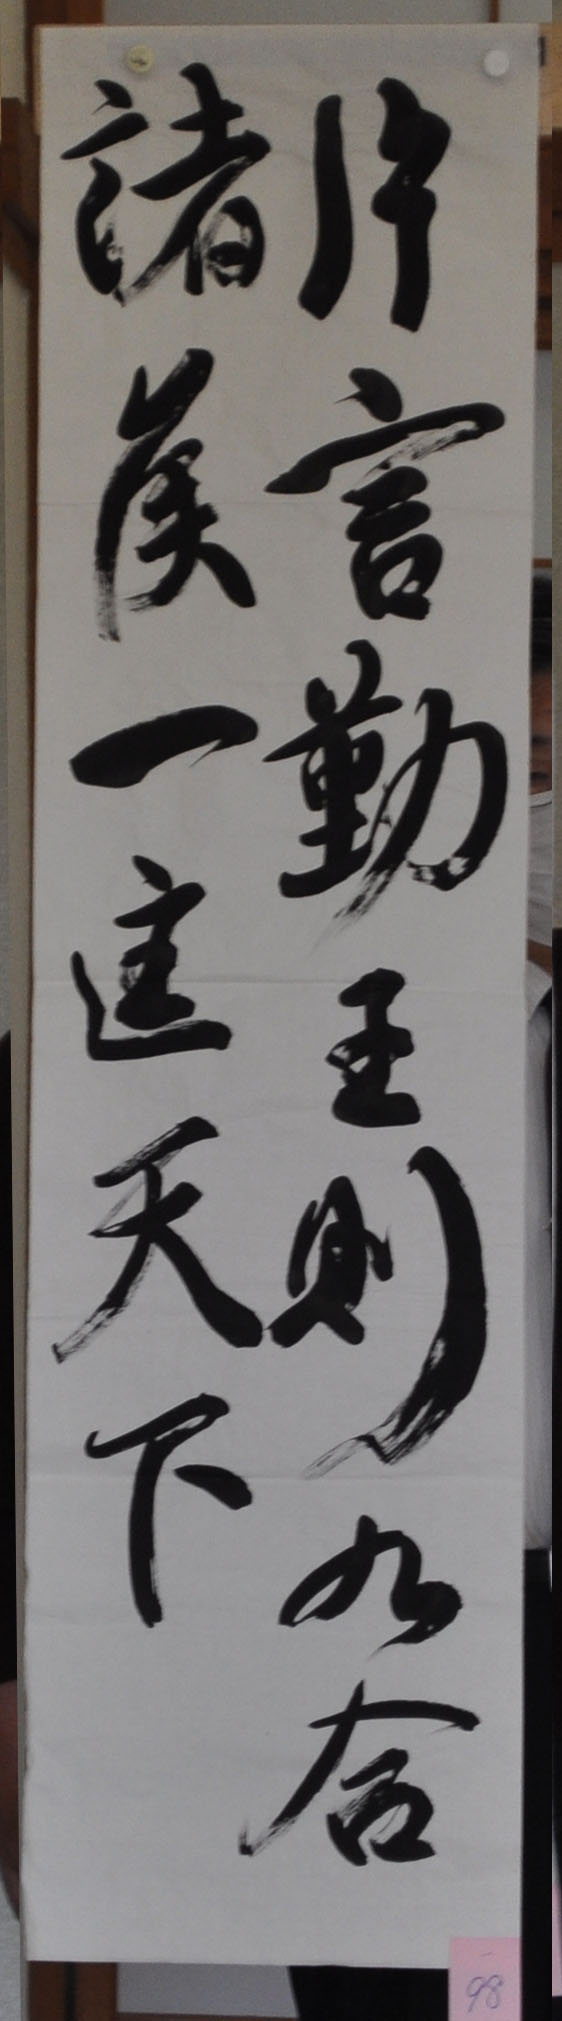 片言勤王則九合
諸侯一匡天下
98